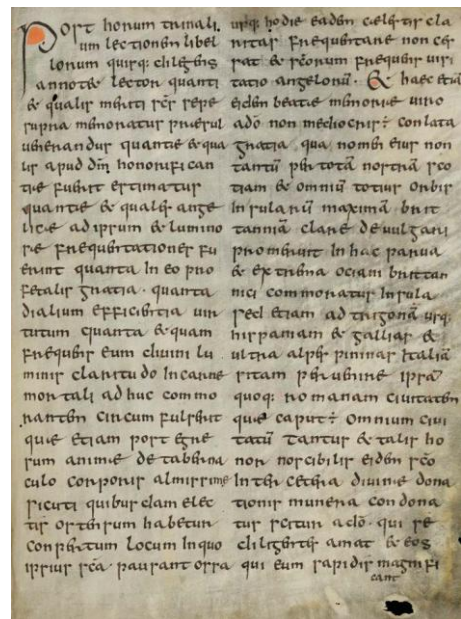 Post horum trinali
um lectionem libel
lorum quisq; diligens
annotet lector quanti
et qualis meriti scs sepe
supra memoratur praesul
uenerandus quantae et qua
lis apud dm̄ honorifican
tiae fuerit estimatus
quantae et quales ange
licae ad ipsum et lumino
sae frequentationes fu
erint quanta in eo pro
fetalis gratia · quanta
dialium efficientia uir
tutum quanta et quam
frequens eum diuini lu
minis claritudo in carne
mortali adhuc commo
rantem circum fulserit
quae etiam post egre
sum animae de taberna
culo corporis almissime
sicuti quibus dam elec
tis ostensum habetur
conpertum locum in quo
ipsius sc̄a pausant ossa
usq; hodie eadem caelestis cla
ritas frequentare non ces
sat et sc̄orum frequens uisi
tatio angelorū. Et haec etiā
eidem beatae memoriae uiro
a dō non mediocris conlata
gratia qua nomen eius non
tantū per totā nostrā sco
tiam et omniū totius orbis
insularū maximā brit
tanniā clare deuulgari
promeruit in hac parua
et extrema ociani brittan
nici commoratus insula
sed etiam ad trigonā usq;
hispaniam et gallias et
ultra alpes pininas italiā
sitam peruenire ipsā
quoq; romanam ciuitatem
quae caput ÷ omnium ciui
tatū tantus et talis ho
nor noscibilis eidem sc̄o
inter cethera diuinae dona
tionis munera condona
tus scitur a dō · qui se
diligentes amat et eos
qui eum sapidis magnifi
cant